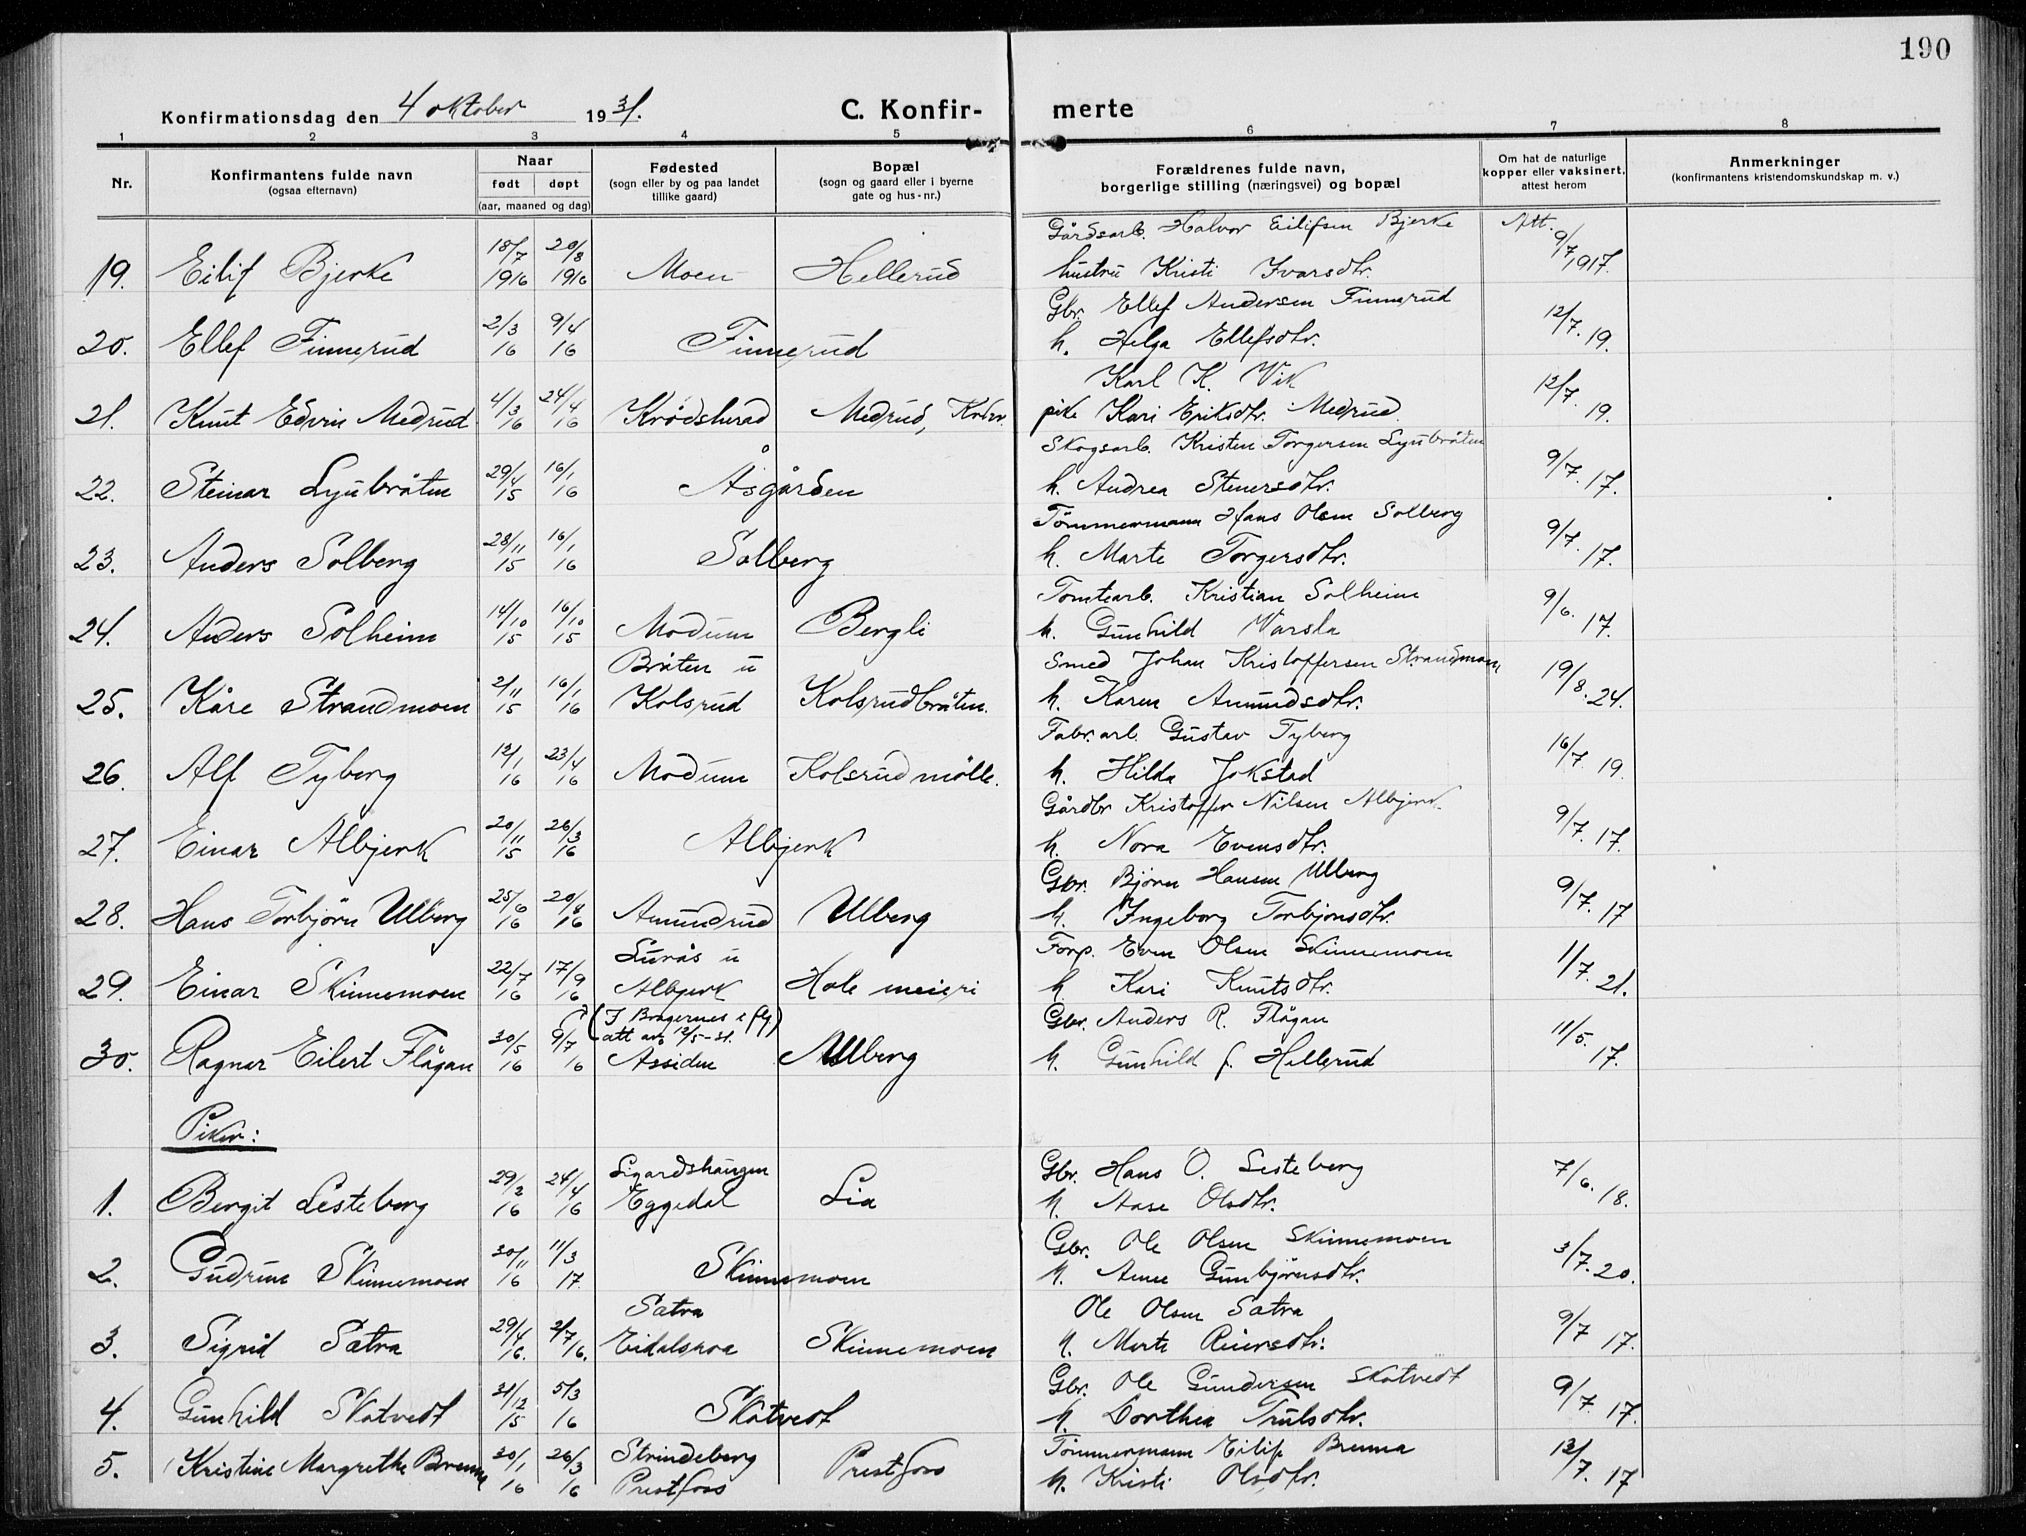 190
Konfirmationsdag den 4 oktober 1931. C. Konfir- merte
1 2 3 4 5 6 7 8
Nr. Konfirmantens fulde navn (ogsaa efternavn) Naar født døpt (aar, maaned og dag) Fødested (sogn eller by og paa landet tillike gaard) Bopæl (sogn og gaard eller i byerne gate og hus-nr.) Forældrenes fulde navn, borgerlige stilling (næringsvei) og bopæl Om hat de naturlige kopper eller vaksinert, attest herom Anmerkninger (konfirmantens kristendomskundskap m. v.)
Gårdsarb. Halvor Eilifsen Bjerke Att.
19. Eilif Bjerke 18/7 1916 20/8 1916 Moen Hellerud hustru Kristi Ivarsdtr. 9/7 1917.
Gbr. Ellef Andersen Finnerud
20. Ellef Finnerud 2/3 16 9/4 16 Finnerud h. Helga Ellefsdtr. 12/7. 19.
Karl K. Vik
21. Knut Edvin Medrud 4/3 16 24/4 16 Krødsherad Medrud, pike Kari Eriksdtr. Medrud 12/7. 19.
Skogsarb. Kristen Torgersen Ljubråten
22. Steinar Ljubråten 29/4 15 16/1 16 Åsgården h. Andrea Stenersdtr. 9/7. 17.
Tømmermann Hans Olsen Solberg
23. Anders Solberg 28/11 15 16/1 16 Solberg h. Marte Torgersdtr. 9/7. 17.
Tomtearb. Kristian Solheim
24. Anders Solheim 14/10 15 16/10 15 Modum Bergli h. Gunhild Varsla 9/6. 17.
Bråten u Smed Johan Kristoffersen Strandmoen
25. Kåre Strandmoen 2/11 15 16/1 16 Kolsrud Kolsrudbråten. h. Karen Amundsdtr. 19/8. 24.
Fabr.arb. Gustav Tyberg
26. Alf Tyberg 12/1 16 23/4 16 Modum Kolsrudmølle. h. Hilda Jokstad 16/7 19.
Gårdbr Kristoffer Nilsen Albjerk
27. Einar Albjerk 20/11 15 26/3 16 Albjerk h. Nora Evensdtr. 9/7. 17.
Gbr. Bjørn Hansen Ulberg
28. Hans Torbjørn Ulberg 25/6 16 20/8 16 Amundrud Ulberg h. Ingeborg Torbjørnsdtr. 9/7. 17
Lurås u Forp. Even Olsen Skinnemoen
29. Einar Skinnemoen 22/7 16 17/9 16 Albjerk Hole meieri h. Kari Knutsdtr. 11/7. 21.
(I Bragernes i flg att av 12/5-31.) Gbr. Anders R. Flågan
30. Ragnar Eilert Flågan 30/5 16 9/7 16 Assiden Ulberg h. Gunhild f. Hellerud 11/5. 17.
Piker:
Sigardshaugen Gbr. Hans O. Lesteberg
1. Bergit Lesteberg 29/2 16 24/4 16 Eggedal Lia h. Aase Olsdtr. 7/6. 18.
Gbr. Ole Olsen Skinnemoen
2. Gudrun Skinnemoen 30/11 16 11/3 17. Skinnemoen h. Anne Gunbjørnsdtr. 3/7. 20.
Satra Ole Olsen Satra
3. Sigrid Satra 29/4 16. 2/7 16. Eidalskroa Skinnemoen h. Marte Reiersdtr. 9/7 17.
Gbr. Ole Gundersen Skatvedt
4. Gunhild Skatvedt 31/12 15 5/3 16 Skatvedt h. Dorthea Trulsdtr. 9/7. 17.
Strindeberg Tømmermann Eilif Brenna
5. Kristine Margrethe Brenna 30/1 16 26/3 16 Prestfoss Prestfoss h. Kristi Olsdtr. 12/7. 17